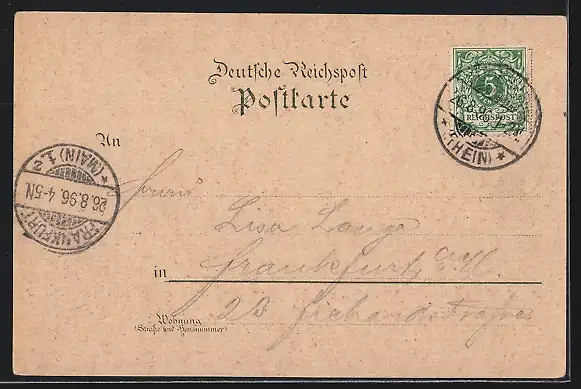 Deutsche Reichspost
Postkarte
5
REICHSPOST
26.8.9
(RHEIN)
An
FRANKFURT
26.8.96.4-5N.
(MAIN) 1.
Lisa Lange
in Frankfurt a/M.
23
Wohnung
(Straße und Hausnummer)